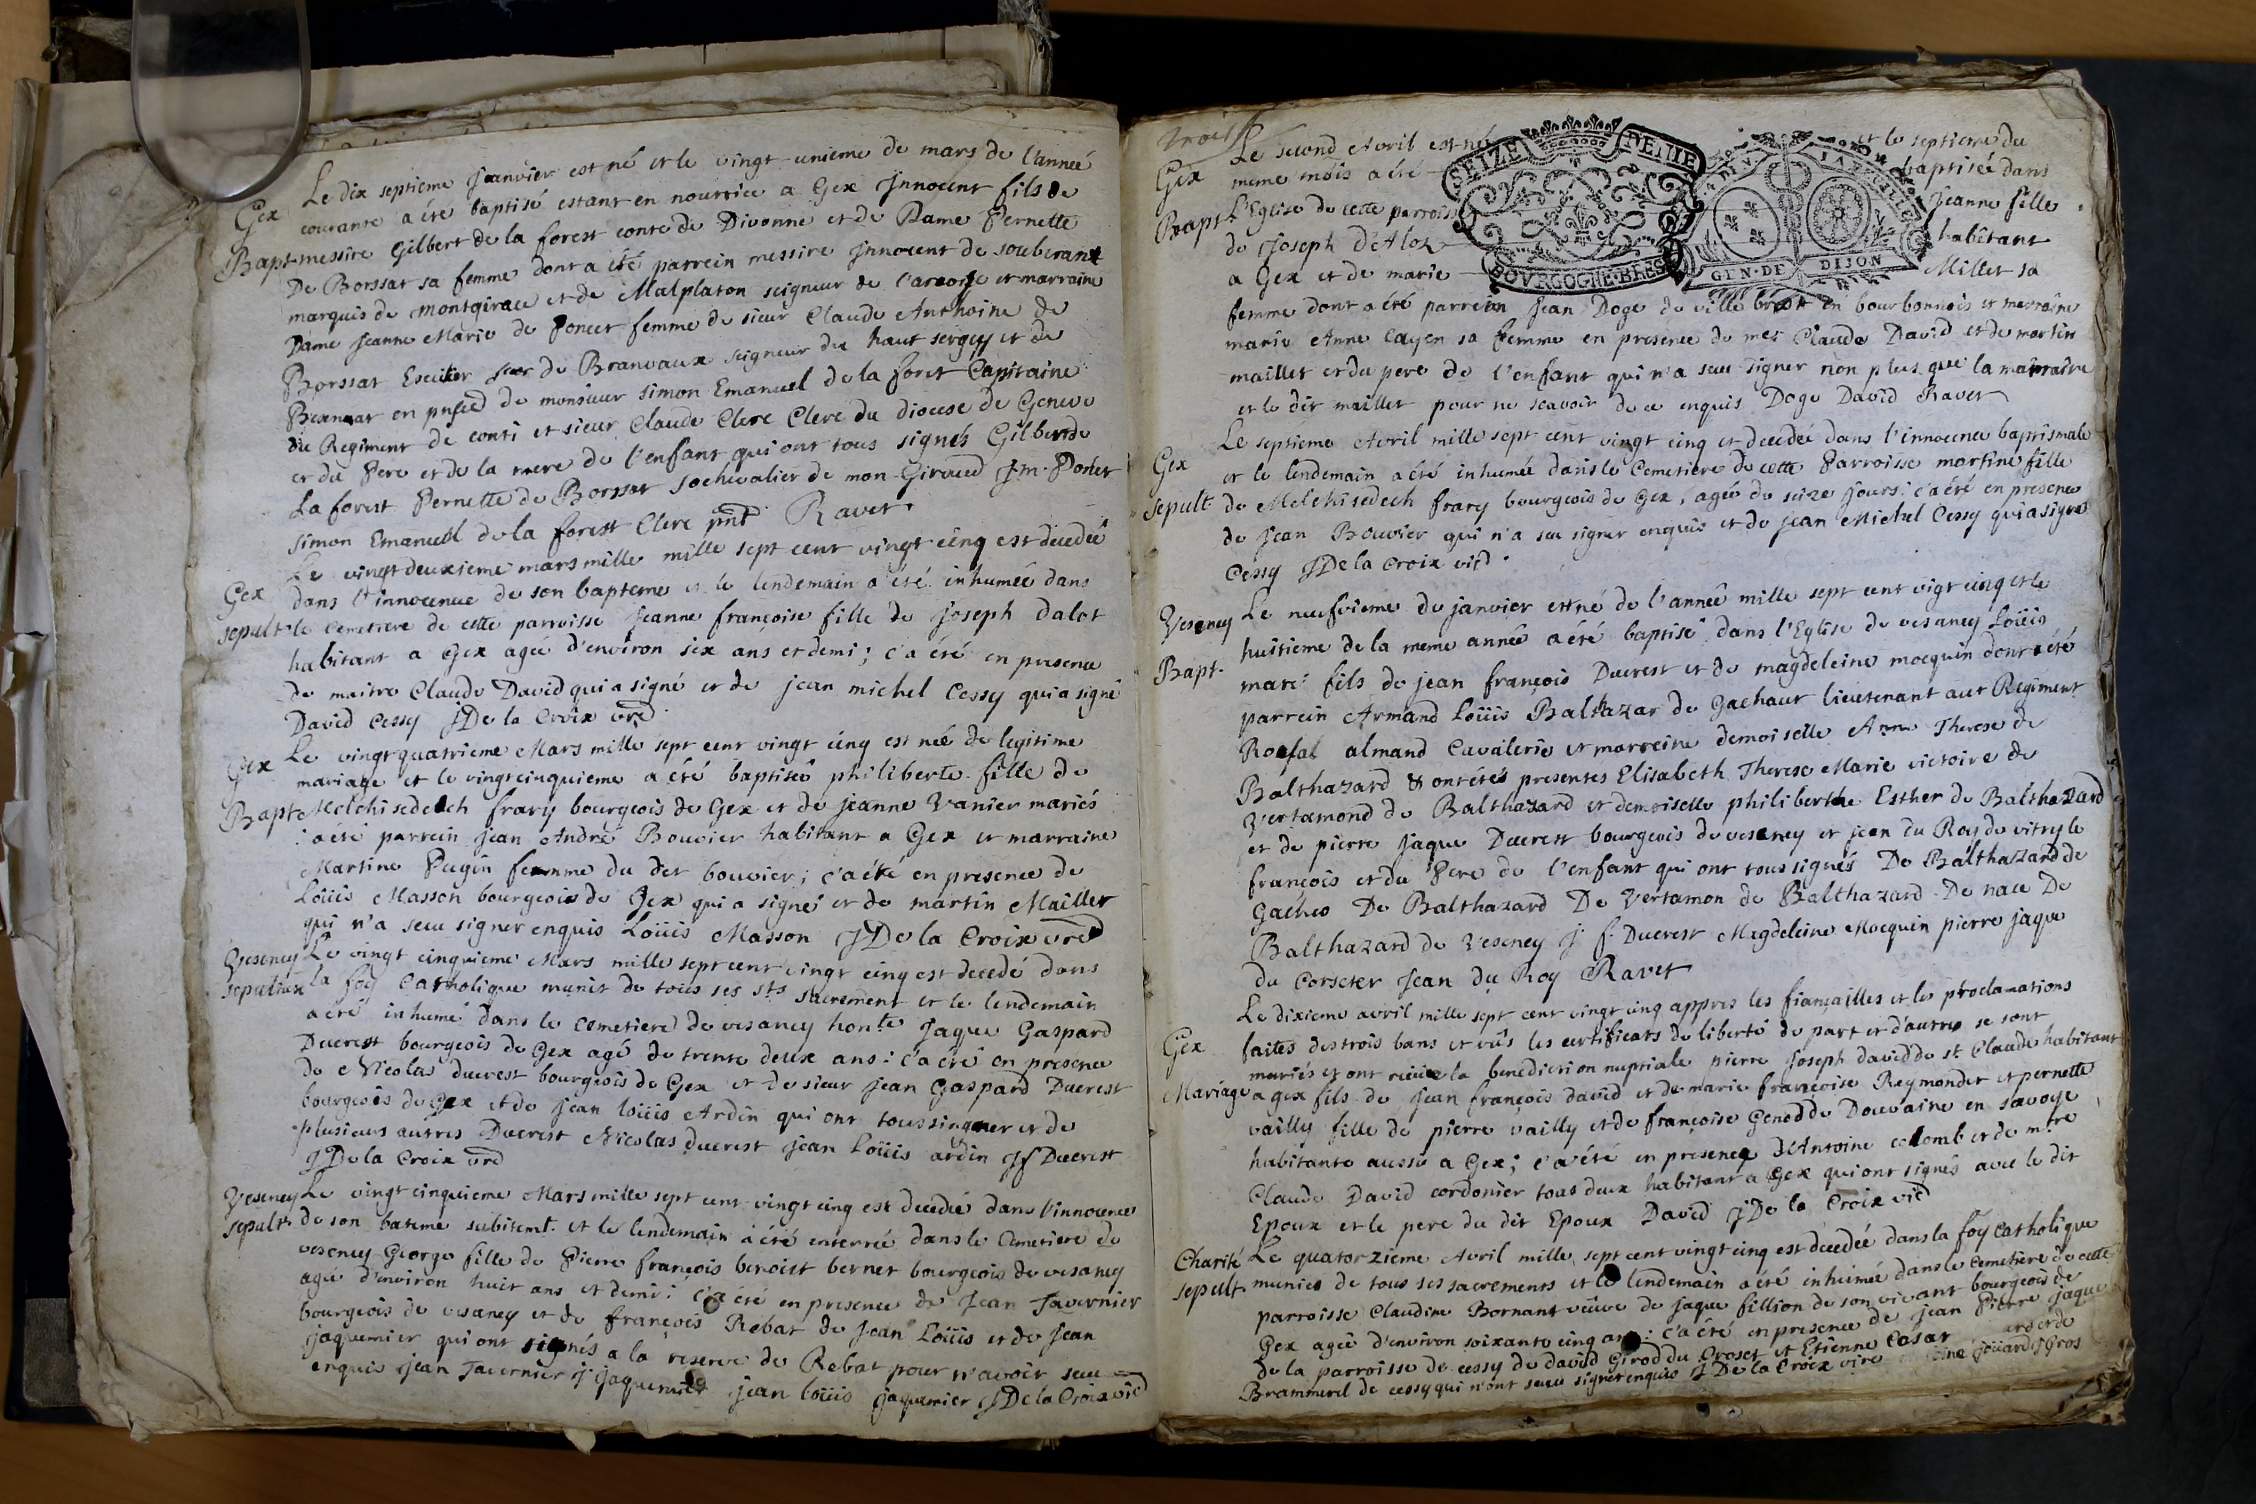 Le dix septieme Janvier est né et le vingt-unieme de mars de l'anneé
Gex
courante a été baptisé estant en nourrice a Gex Jnnocent fils de
Bapt. messire Gilbert de la forest conte de Divonne et de Dame Pernette
De Borssat sa femme dont a été parrein messire Jnnocent de
marquis de et de Malplaton seigneur de et marraine
Dame Jeanne Marie de Poncet femme de sieur Claude Anthoine de
Borssat Escuier de Branvaux seigneur du haut sergy et de
en de monsieur simon Emanuel de la foret Capitaine
du Regiment de conti et sieur Claude Clerc Clerc du diocese de Geneve
et du Pere et de la mere de l'enfant qui ont tous signés Gilbert de
La forest Pernette de Borssat de mon Giraud J.m. Poncet
simon Emanuel de la forest Clerc pnt Ravet
Le vingt deuxieme mars mille mille sept cent vingt cinq est decedeé
Gex
dans l'innocence de son bapteme et le lendemain a été inhumeé dans
sepult. le cemetiere de cette parroisse Jeanne françoise fille de Joseph dalot
habitant a Gex ageé d'environ six ans et demi; c'a été en presence
de maitre Claude David qui a signé et de jean michel Cessy qui a signé
David Cessy J De la Croix vre
Gex Le vingt quatrieme Mars mille sept cent vingt cinq est neé de legitime
mariage et le vingtcinquieme a été baptiseé philiberte fille de
Bapt. Melchisedech frary bourgeois de Gex et de jeanne Vanier mariés
a été parrein jean André Bouvier habitant a Gex et marraine
Martine Pugin femme du det bouvier; c'a été en presence de
Loüis Masson bourgeois de Gex qui a signé et de martin Maillet
qui n'a seu signer enquis Loüis Masson J De la Croix vre
Veseney Le vingt cinquieme Mars mille sept cent vingt cinq est decedé dans
sepulture la foy Catholique munit de tous ses sts sacrement et le lendemain
a été inhumé dans le cemetiere de vesancy honte Jaque Gaspard
Ducrest bourgeois de Gex agé de trente deux ans: c'a été en presence
de Nicolas ducrest bourgeois de Gex et de sieur jean Gaspard Ducrest
bourgeois de Gex et de jean loüis Ardin qui ont tous signer et de
plusieurs autres Ducrest Nicolas ducrest jean Loüis ardin Jf Ducrest
J De la Croix vre
Veseney Le vingt cinquieme Mars mille sept cent vingt cinq est decedeé dans l'innocence
sepult. de son bateme subitemt. et le lendemain a été enterreé dans le Cemetiere de
veseney George fille de Pierre françois benoist bernet bourgeois de vesancy
ageé d'environ huit ans et demi: c'a été en presence de Jean Tavernier
bourgeois de vesaney et de françois Rebat de Jean Loüis et de Jean
jaquemier qui ont signés a la reserve de Rebat pour n'avoir seu
enquis jean Tavernier J jaquemier jean loüis jaquemier J De la Croix vic
trois
Le second Avril est né et le septieme du
Gex
meme mois a été baptiseé dans
Bapt. l'Eglise de cette parroisse Jeanne fille
de Joseph d'Aloz habitant
a Gex et de marie Millet sa
SEIZE DENIE
BOVRGOGNE BRES
GEN DE DIJON
femme dont a été parrein Jean Doge de ville en bourbonnois et marraine
marie Anne Cayen sa femme en presence de mes Claude David et de martin
maillet et du pere de l'enfant qui n'a seu signer non plus que la marraine
et le dit maillet pour ne scavoir de ce enquis Doge David Ravet
Le septieme Avril mille sept cent vingt cinq et decedeé dans l'innocence baptismale
Gex
et le lendemain a été inhumeé dans le Cemetiere de cette Parroisse martine fille
sepult. de Melchisedech frary bourgeois de Gex, ageé de seize jours: c'a été en presence
de Jean Bouvier qui n'a seu signer enquis et de jean Michel Cessy qui a signé
Cessy J De la Croix vic
Veseney Le neufvieme de janvier est né de l'anneé mille sept cent vigt cinq et le
huitieme de la meme anneé a été baptisé dans l'Eglise de vesaney Loüis
Bapt.
marc fils de jean françois Ducrest et de magdeleine mocquin dont a été
parrein Armand Loüis Balthazar de Gachaut lieutenant aut Regiment
almand Cavalerie et marreine demoiselle Anne Therese de
Balthazard & ont étés presentes Elisabeth Therese Marie victoire de
Vertamond de Balthazard et demoiselle philiberthe Esther de Balthazard
et de pierre jaque Ducrest bourgeois de veseney et jean du Roy de vitry le
françois et du Pere de l'enfant qui ont tous signés De Balthazard de
Gacheo De Balthazard De Vertamon de Balthazard De nace De
Balthazard de Veseney J f Ducrest Magdeleine Mocquin pierre jaque
du Jean du Roy Ravet
Le dixieme avril mille sept cent vingt cinq appres les fiançailles et les proclamations
Gex faites des trois bans et vûs les certificats de liberté de part et d'autre se sont
mariés et ont la benediction nuptiale pierre joseph david de st Claude habitant
Mariage a gex fils de Jean françois david et de marie françoise Reymondet et pernette
vailly fille de pierre vailly et de françoise Genod de Douvaine en savoye
habitante aussi a Gex; c'a été en presence d'Antoine colomb et de mtre
Claude David cordonier tous deux habitant a Gex qui ont signés avec le dit
Epoux et le pere du dit Epoux David J De la Croix vic
Charité Le quatorzieme Avril mille sept cent vingt cinq est decedeé dans la foy Catholique
sepult. munies de tous ses sacrements et le lendemain a été inhumeé dans le cemetiere de cette
parroisse Claudine Bornant veuve de jaque fillion de son vivant bourgeois de
Gex ageé d'environ soixante cinq ans: c'a été en presence de jean Pierre jaque
de la parroisse de cessy de david Girod du Croset et Etienne
de cessy qui n'ont seu signer enquis J De la Croix vire